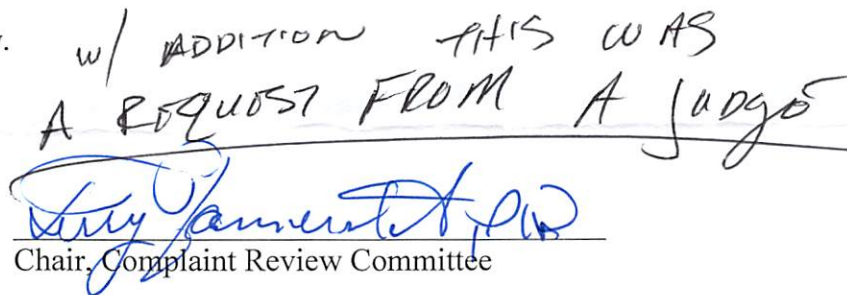 w/ ADDITION THIS WAS
A REQUEST FROM A JUDGE
Chair, Complaint Review Committee